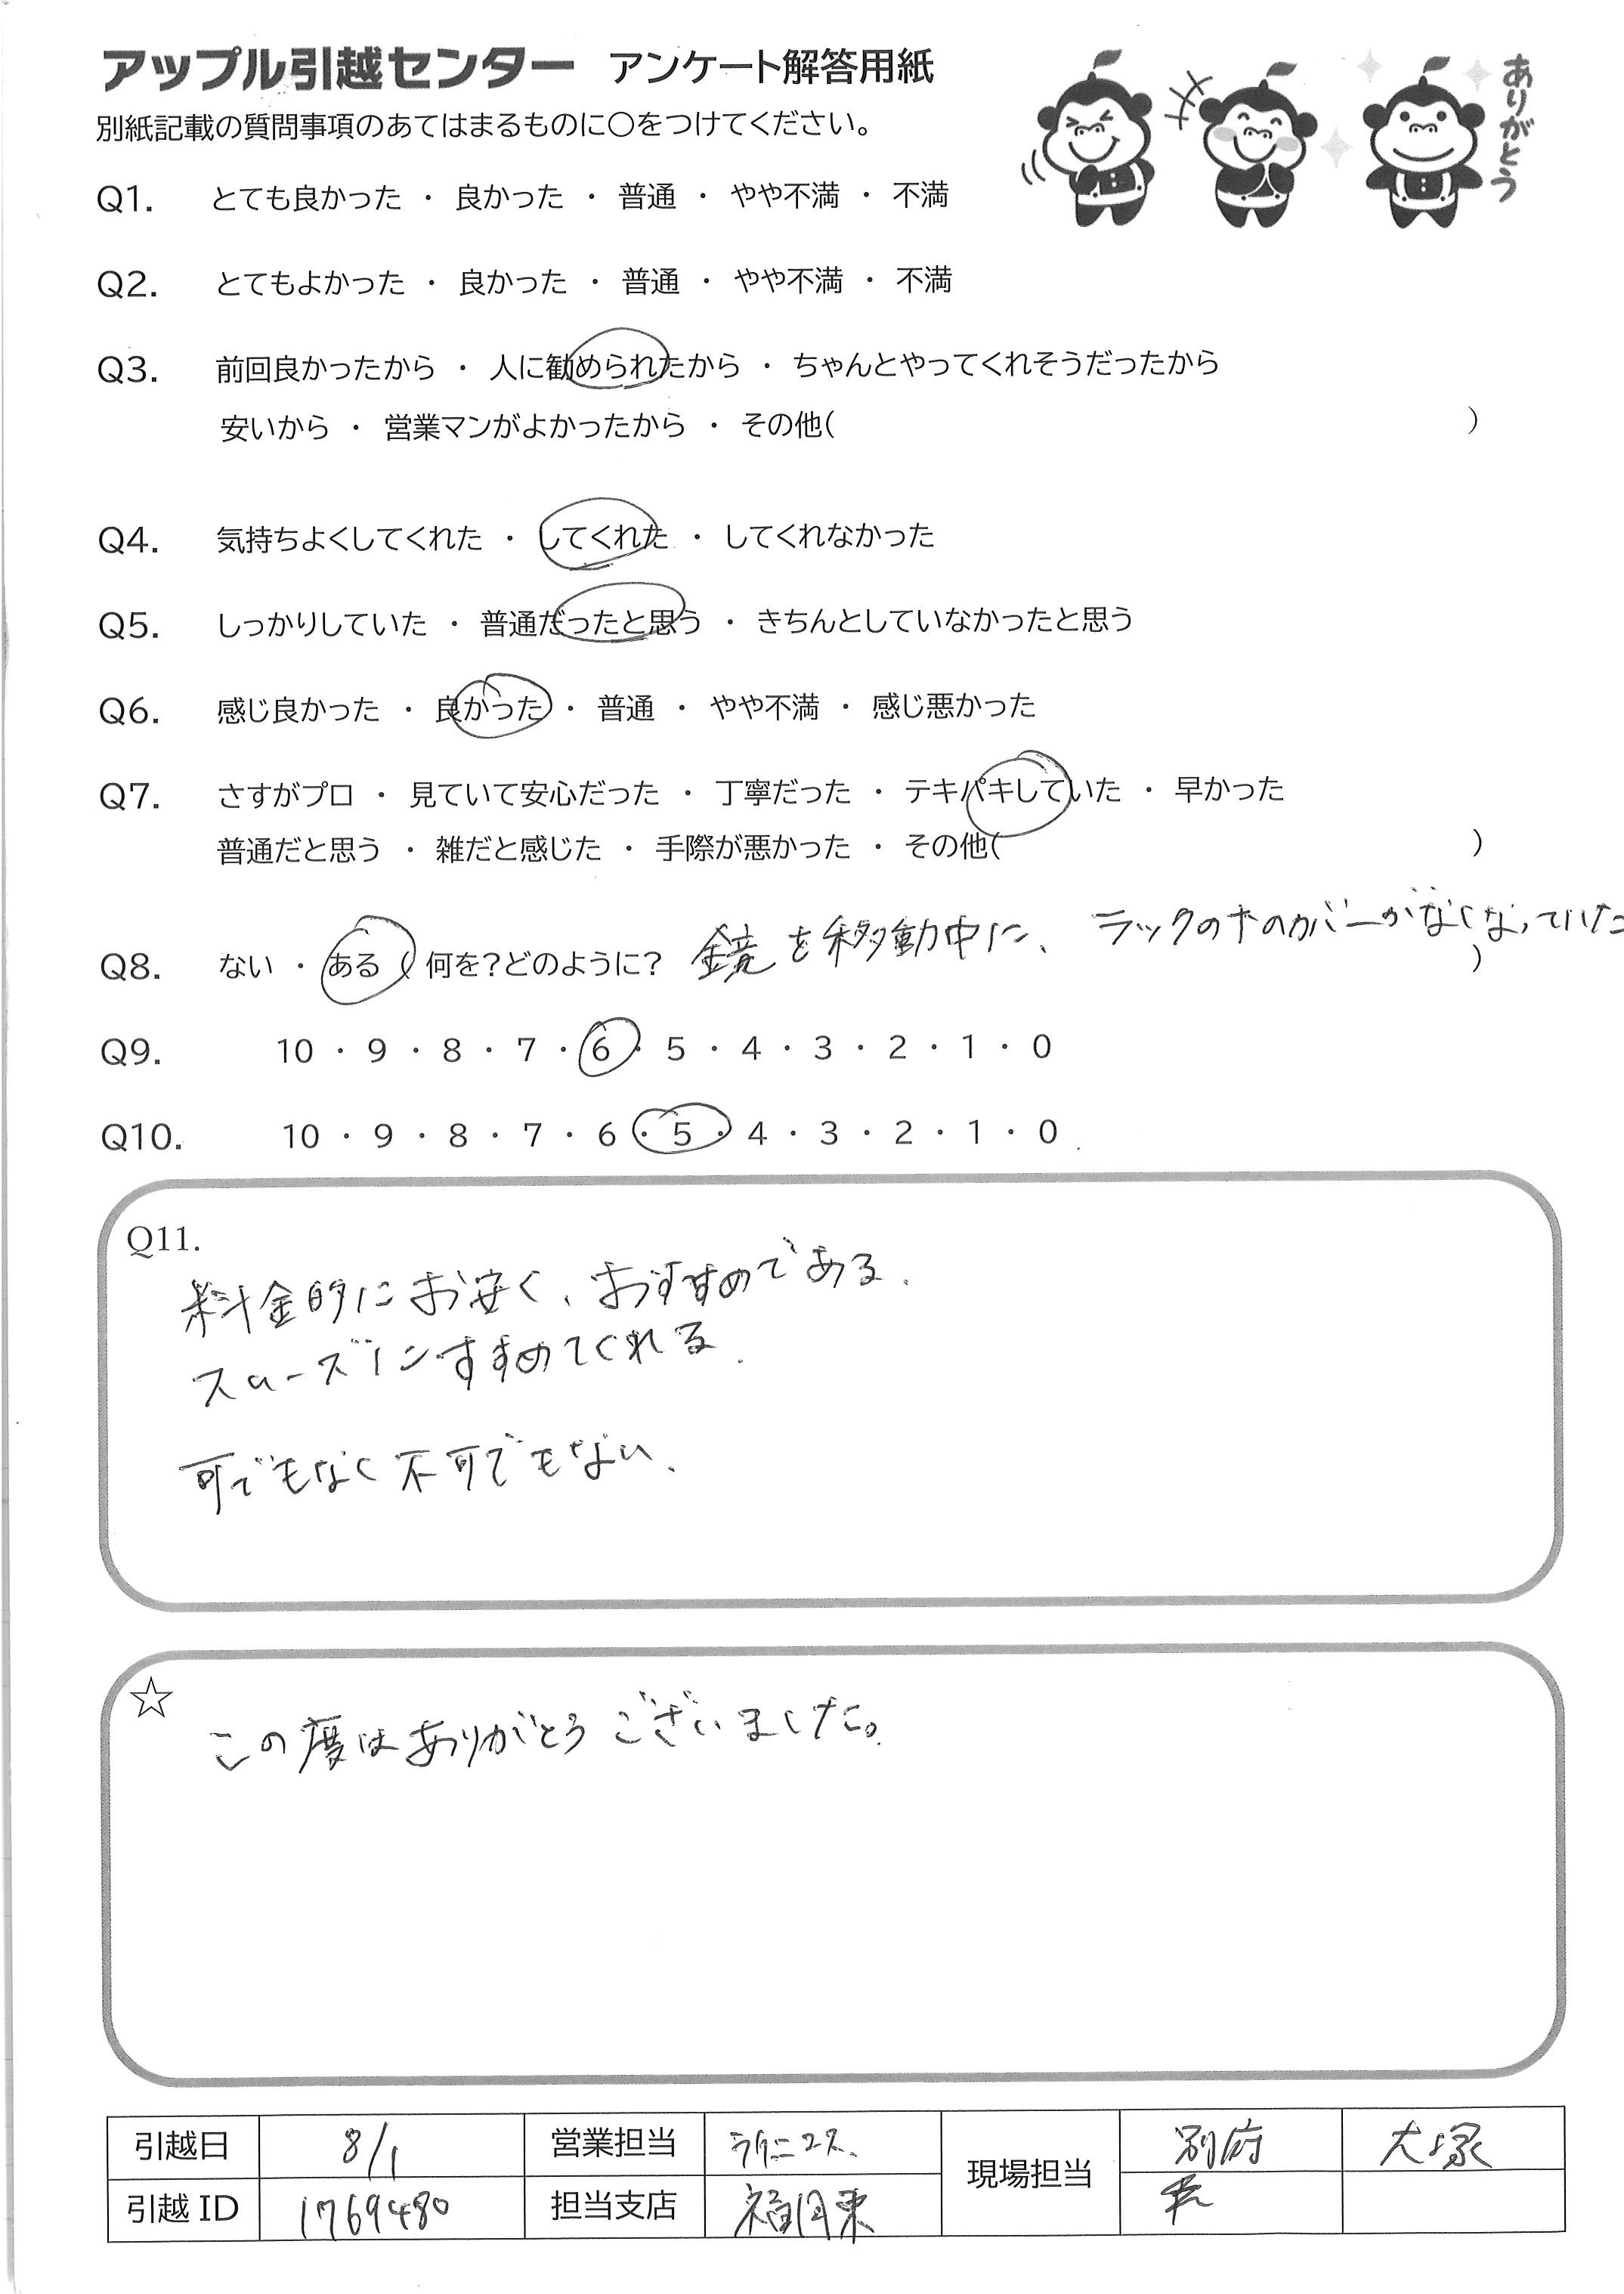 アップル引越センター アンケート解答用紙
ありがとう
別紙記載の質問事項のあてはまるものに○をつけてください。
Q1. とても良かった ・ 良かった ・ 普通 ・ やや不満 ・ 不満
Q2. とてもよかった ・ 良かった ・ 普通 ・ やや不満 ・ 不満
Q3. 前回良かったから ・ 人に勧められたから ・ ちゃんとやってくれそうだったから
安いから ・ 営業マンがよかったから ・ その他( )
Q4. 気持ちよくしてくれた ・ してくれた ・ してくれなかった
Q5. しっかりしていた ・ 普通だったと思う ・ きちんとしていなかったと思う
Q6. 感じ良かった ・ 良かった ・ 普通 ・ やや不満 ・ 感じ悪かった
Q7. さすがプロ ・ 見ていて安心だった ・ 丁寧だった ・ テキパキしていた ・ 早かった
普通だと思う ・ 雑だと感じた ・ 手際が悪かった ・ その他( )
Q8. ない ・ ある ( 何を?どのように? 鏡を移動中に、 ラックの のカバーがなくなっていた )
Q9. 10 ・ 9 ・ 8 ・ 7 ・ 6 ・ 5 ・ 4 ・ 3 ・ 2 ・ 1 ・ 0
Q10. 10 ・ 9 ・ 8 ・ 7 ・ 6 ・ 5 ・ 4 ・ 3 ・ 2 ・ 1 ・ 0
Q11.
料金的にお安く、おすすめである.
スムーズにすすめてくれる.
可でもなく不可でもない.
☆
この度はありがとうございました。
引越日 8/1 営業担当 現場担当 別府 大塚
引越ID 1769480 担当支店 福岡東